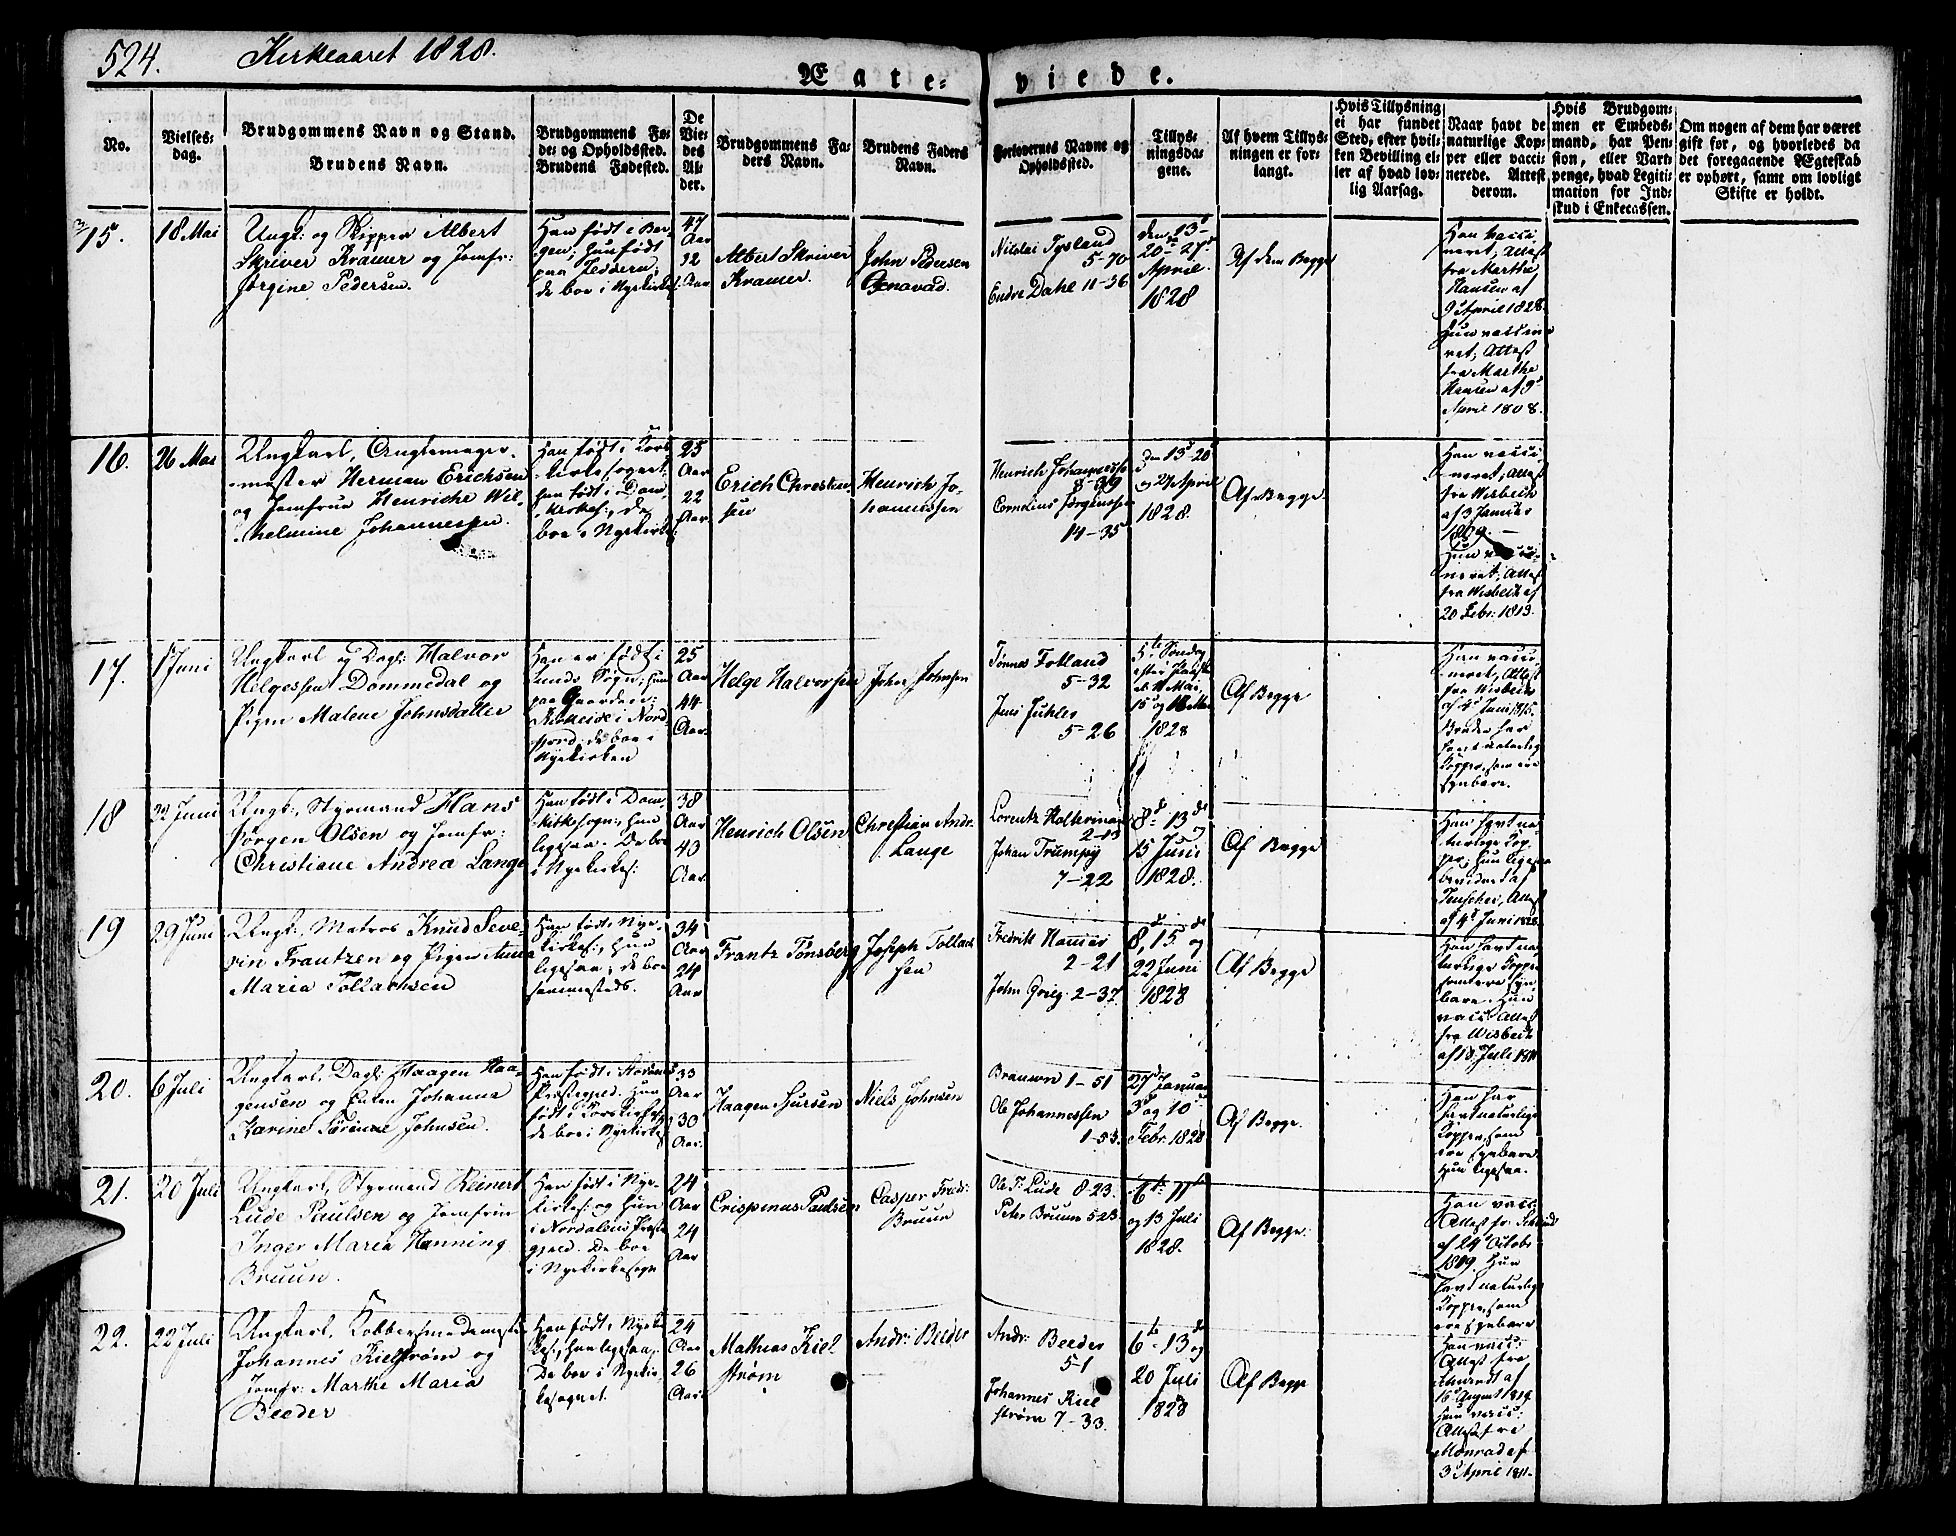 524.
Kirkeaaret 1828.
Ægte-
viede.
No.
Vielses-
dag.
Brudgommens Navn og Stand.
Brudens Navn.
Brudgommens Fø-
de- og Opholdssted.
Brudens Fødested.
De
Vie-
des
Al-
der.
Brudgommens Fa-
ders Navn.
Brudens Faders
Navn.
Forlovernes Navne og
Opholdssted.
Tillys-
ningsda-
gene.
Af hvem Tillys-
ningen er for-
langt.
Hvis Tillysning
ei har fundet
Sted, efter hvil-
ken Bevilling el-
ler af hvad lov-
lig Aarsag.
Naar havt de
naturlige Kop-
per eller vacci-
nerede. Attest
derom.
Hvis Brudgom-
men er Embeds-
mand, har Pen-
sion, eller Vart-
penge, hvad Legiti-
mation for Ind-
skud i Enkecassen.
Om nogen af dem har været
gift før, og hvorledes da
det foregaaende Ægteskab
er ophørt, samt om lovligt
Skifte er holdt.
15.
18 Mai
Ungk: og Skipper Albert
Skriver Kramer og Jomfr:
Jørgine Pedersen.
Han født i Ber-
gen, hun født
paa Jeddern;
de boe i Nyekirkes:
47
Aar
32
Aar
Albert Skriver
Kramer.
John Pedersen
Nicolai Tysland
5-70
Endre Dahl 11-36
den 13
20 27
April
1828
Af dem Begge
Han vacci-
neret, Attest
fra Marthe
Hansen af
9 April 1828.
Hun vaccine
ret, Attest
fra Marthe
Hansen af 9
April 1808.
16.
26 Mai
Ungkarl,
mester Herman Erichsen
og Jomfrue Henriche Wil-
helmine Johannessen.
Han født i Kors
kirkesognet;
hun født i Dom-
kirkes:, de
boe i Nyekirkes:
25
Aar
22
Aar
Erich Christen
sen
Henrich Jo-
hannessen
Henrich Johannessen
8-39
Cornelius Jørgensen
14-35
den 13 20
og 27 April
1828.
Af Begge
Han vacci-
neret, Attest
fra Wisbech
af 3 Januar
1809.
Hun vacci-
neret, Attest
fra Wisbech af
20 Febr: 1813.
17.
1 Juni
Ungkarl og Dagl: Halvor
Helgessen Dommedal og
Pigen Malene Johnsdatter
Han er født i
Lunds Sogn; hun
paa Gaarden
i Nord-
fjord; de boe i
Nyekirken
25
Aar
44
Aar
Helge Halvorsen
John Johnsen
Tønnes Fotland
5-32
Jens Juhler
5-26
5te Søndag
efter Paaske
11 Mai,
15 og 18 Mai
1828
Af Begge
Han vacci-
neret, Attest
fra Wisbech
af 4 Juni 1815.
Bruden har
havt naturlige
Kopper, som ere
synbare.
18
22 Juni
Ungk:, Styrmand Hans
Jørgen Olsen og Jomfr:
Christiane Andrea Lange
Han født i Dom-
kirkesogn, hun
ligesaa. De boe
i Nyekirkes:
38
Aar
40
Aar
Henrich Olsen
Christian Andr:
Lange
Lorentz Holterman
2-13
Johan Trumpy
7-22
8 13 og
15 Juni
1828.
Af Begge
Han havt na-
turlige Kop-
per, hun ligesaa
bevidnet af
Attest
af 4 Juni 1828
19
29 Juni
Ungk:, Matros Knud Seve-
rin Frantzen og Pigen Anne
Maria Tollachsen
Han født i Nye-
kirkes:, hun
ligesaa; de boe
sammesteds.
34
Aar
24
Aar
Frantz Tønsberg
Joseph Tollach
sen
Fredrik Hammer
2-21
John Grieg. 2-37
8, 15 og
22 Juni
1828
Af Begge
Han havt na-
turlige Kopper
som ere syn-
bare. Hun
vacc: Attest
fra Wisbech
af 18 Juli 1811
20.
6 Juli
Ungkarl, Dagl: Haagen Haa-
gensen og Enken Johanna
Karine Sørinne Johnsen.
Han født i
Præstegjed. Hun
født i Korskirkes:
de boe i Nyekirkes:
33
Aar
30
Aar.
Haagen Sjursen
Niels Johnsen
Braunn 1-51
Ole Johannessen
1-53.
27 Januar
3 og 10
Febr. 1828
Af Begge.
Han har
havt naturlige
Kopper, som
ere synbare
Hun ligesaa.
21.
20 Juli
Ungkarl, Styrmand Reinert
Lude Paulsen og Jomfrue
Inger Maria Hanning
Bruun.
Han født i Nye-
kirkes: og Hun
i Nordalens Præste-
gjeld. De boe
i Nyekirkesogn
24
Aar
24
Aar
Crispinus Paulsen
Casper Fredr:
Bruun
Ole T: Lude 8-23.
Peter Bruun 5-23.
6te 11
og 13 Juli
1828.
Af Begge.
Han vacc:
Attest fr:
af 24 Octobr
1809. Hun
havt naturlige
Kopper, som
ere synbare
22.
22 Juli
Ungkarl, Kobbersmedemester
Johannes Kielstrøm og
Jomfr: Marthe Maria
Beeder
Han født i Nyekir
kes:, hun ligesaa.
De boe i Nyekir-
kesognet.
24
Aar
26
Aar.
Mathias Kiel
strøm
Andr: Beeder
Andr: Beeder
5-1
Johannes Kiel
strøm 7-33.
6te 13 og
20 Juli
1828
Af Begge
Han vacc:
Attest fra
Arendt af
16 August 1819
Hun vacc:
Attest fra
Monrad af
3 April 1811.